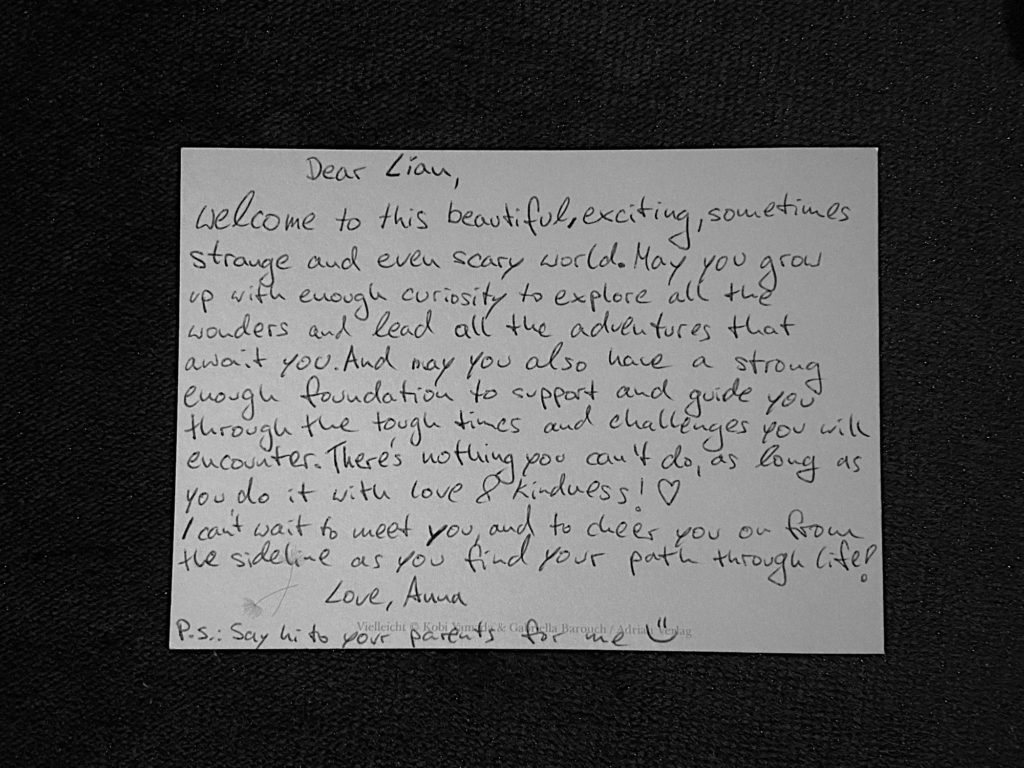 Dear Lian,
Welcome to this beautiful, exciting, sometimes
strange and even scary world. May you grow
up with enough curiosity to explore all the
wonders and lead all the adventures that
await you. And may you also have a strong
enough foundation to support and guide you
through the tough times and challenges you will
encounter. There's nothing you can't do, as long as
you do it with love & kindness! ♡
I can't wait to meet you, and to cheer you on from
the sideline as you find your path through life!
Love, Anna
Vielleicht © Kobi Yamada & Gabriella Barouch / Adrian Verlag
P.s.: Say hi to your parents for me ☺